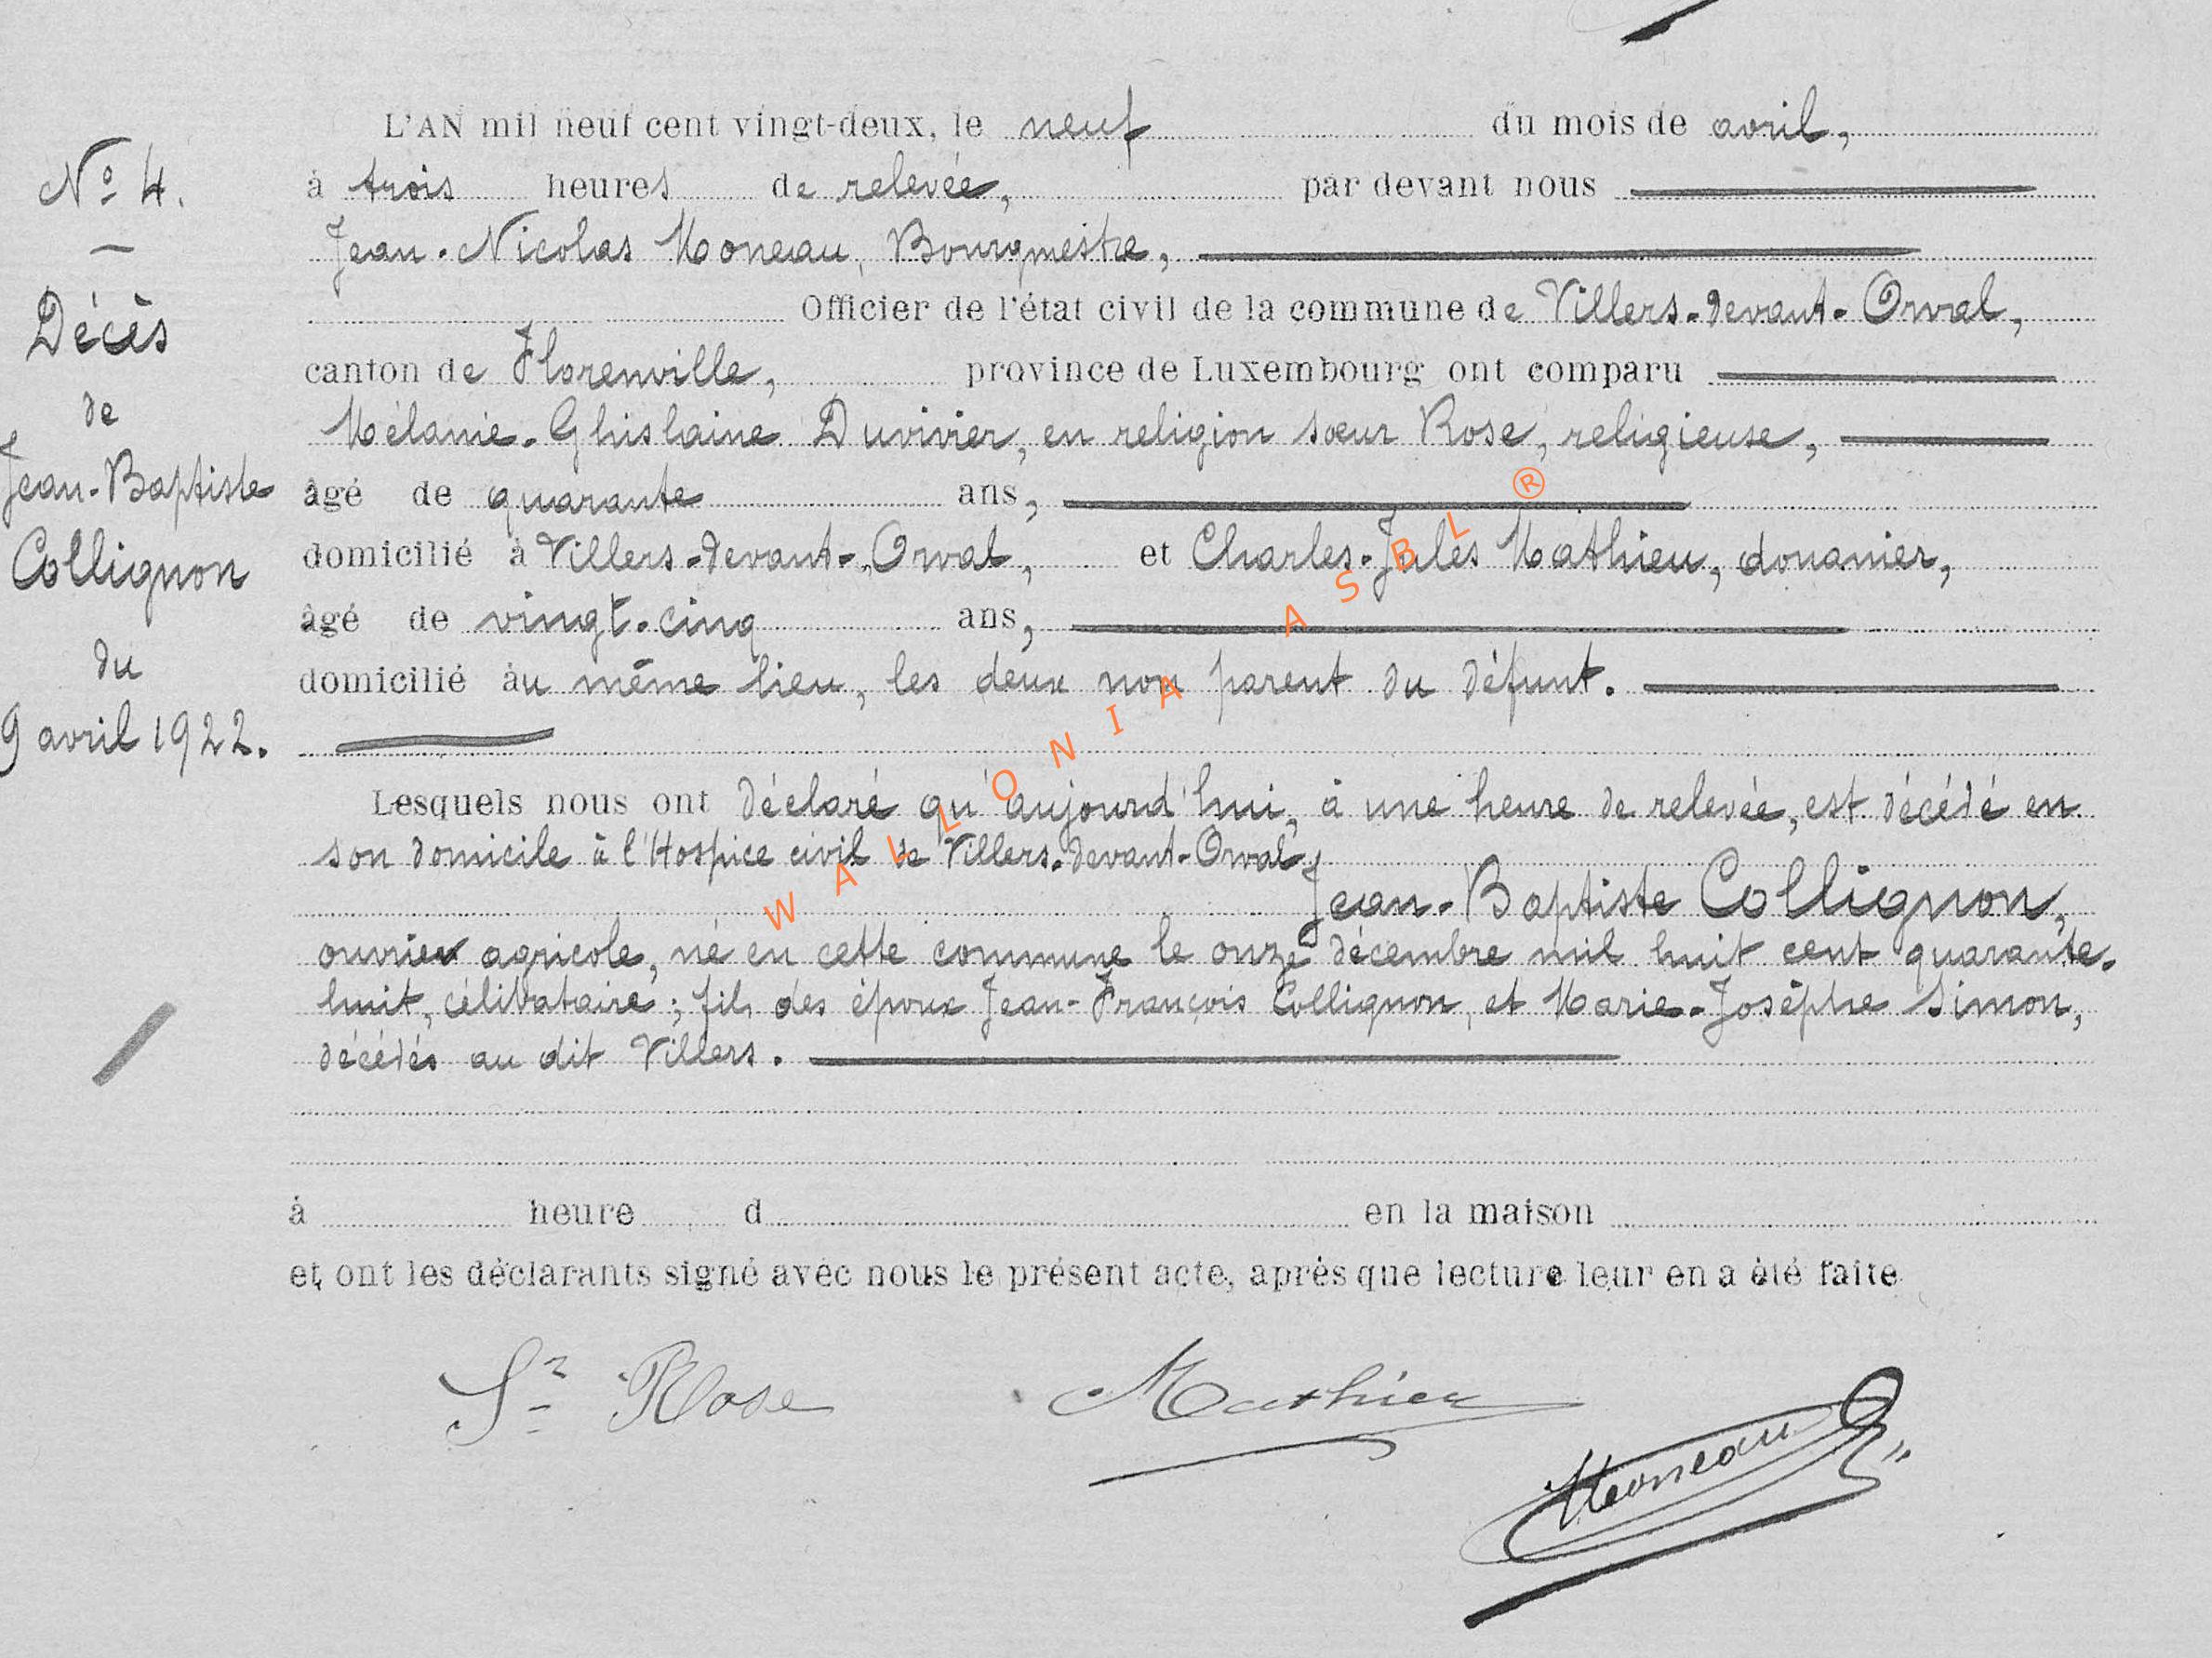 N° 4.
Décès
de
Jean-Baptiste
Collignon
du
9 avril 1922.
L'AN mil neuf cent vingt-deux, le neuf du mois de avril,
à trois heures de relevée, par devant nous
Jean-Nicolas Moneau, Bourgmestre,
Officier de l'état civil de la commune de Villers-devant-Orval,
canton de Florenville, province de Luxembourg ont comparu
Mélanie-Ghislaine Duvivier, en religion sœur Rose, religieuse,
âgé de quarante ans,
domicilié à Villers-devant-Orval, et Charles-Jules Mathieu, douanier,
âgé de vingt-cinq ans,
domicilié au même lieu, les deux non parent du défunt.
Lesquels nous ont déclaré qu'aujourd'hui, à une heure de relevée, est décédé en
son domicile à l'Hospice civil de Villers-devant-Orval,
Jean-Baptiste Collignon,
ouvrier agricole, né en cette commune le onze décembre mil huit cent quarante-
huit, célibataire; fils des époux Jean-François Collignon, et Marie-Josèphe Simon,
décédés au dit Villers.
à heure d en la maison
et ont les déclarants signé avec nous le présent acte, après que lecture leur en a été faite
Sr Rose Mathieu
Moneau
WALLONIA ASBL ®